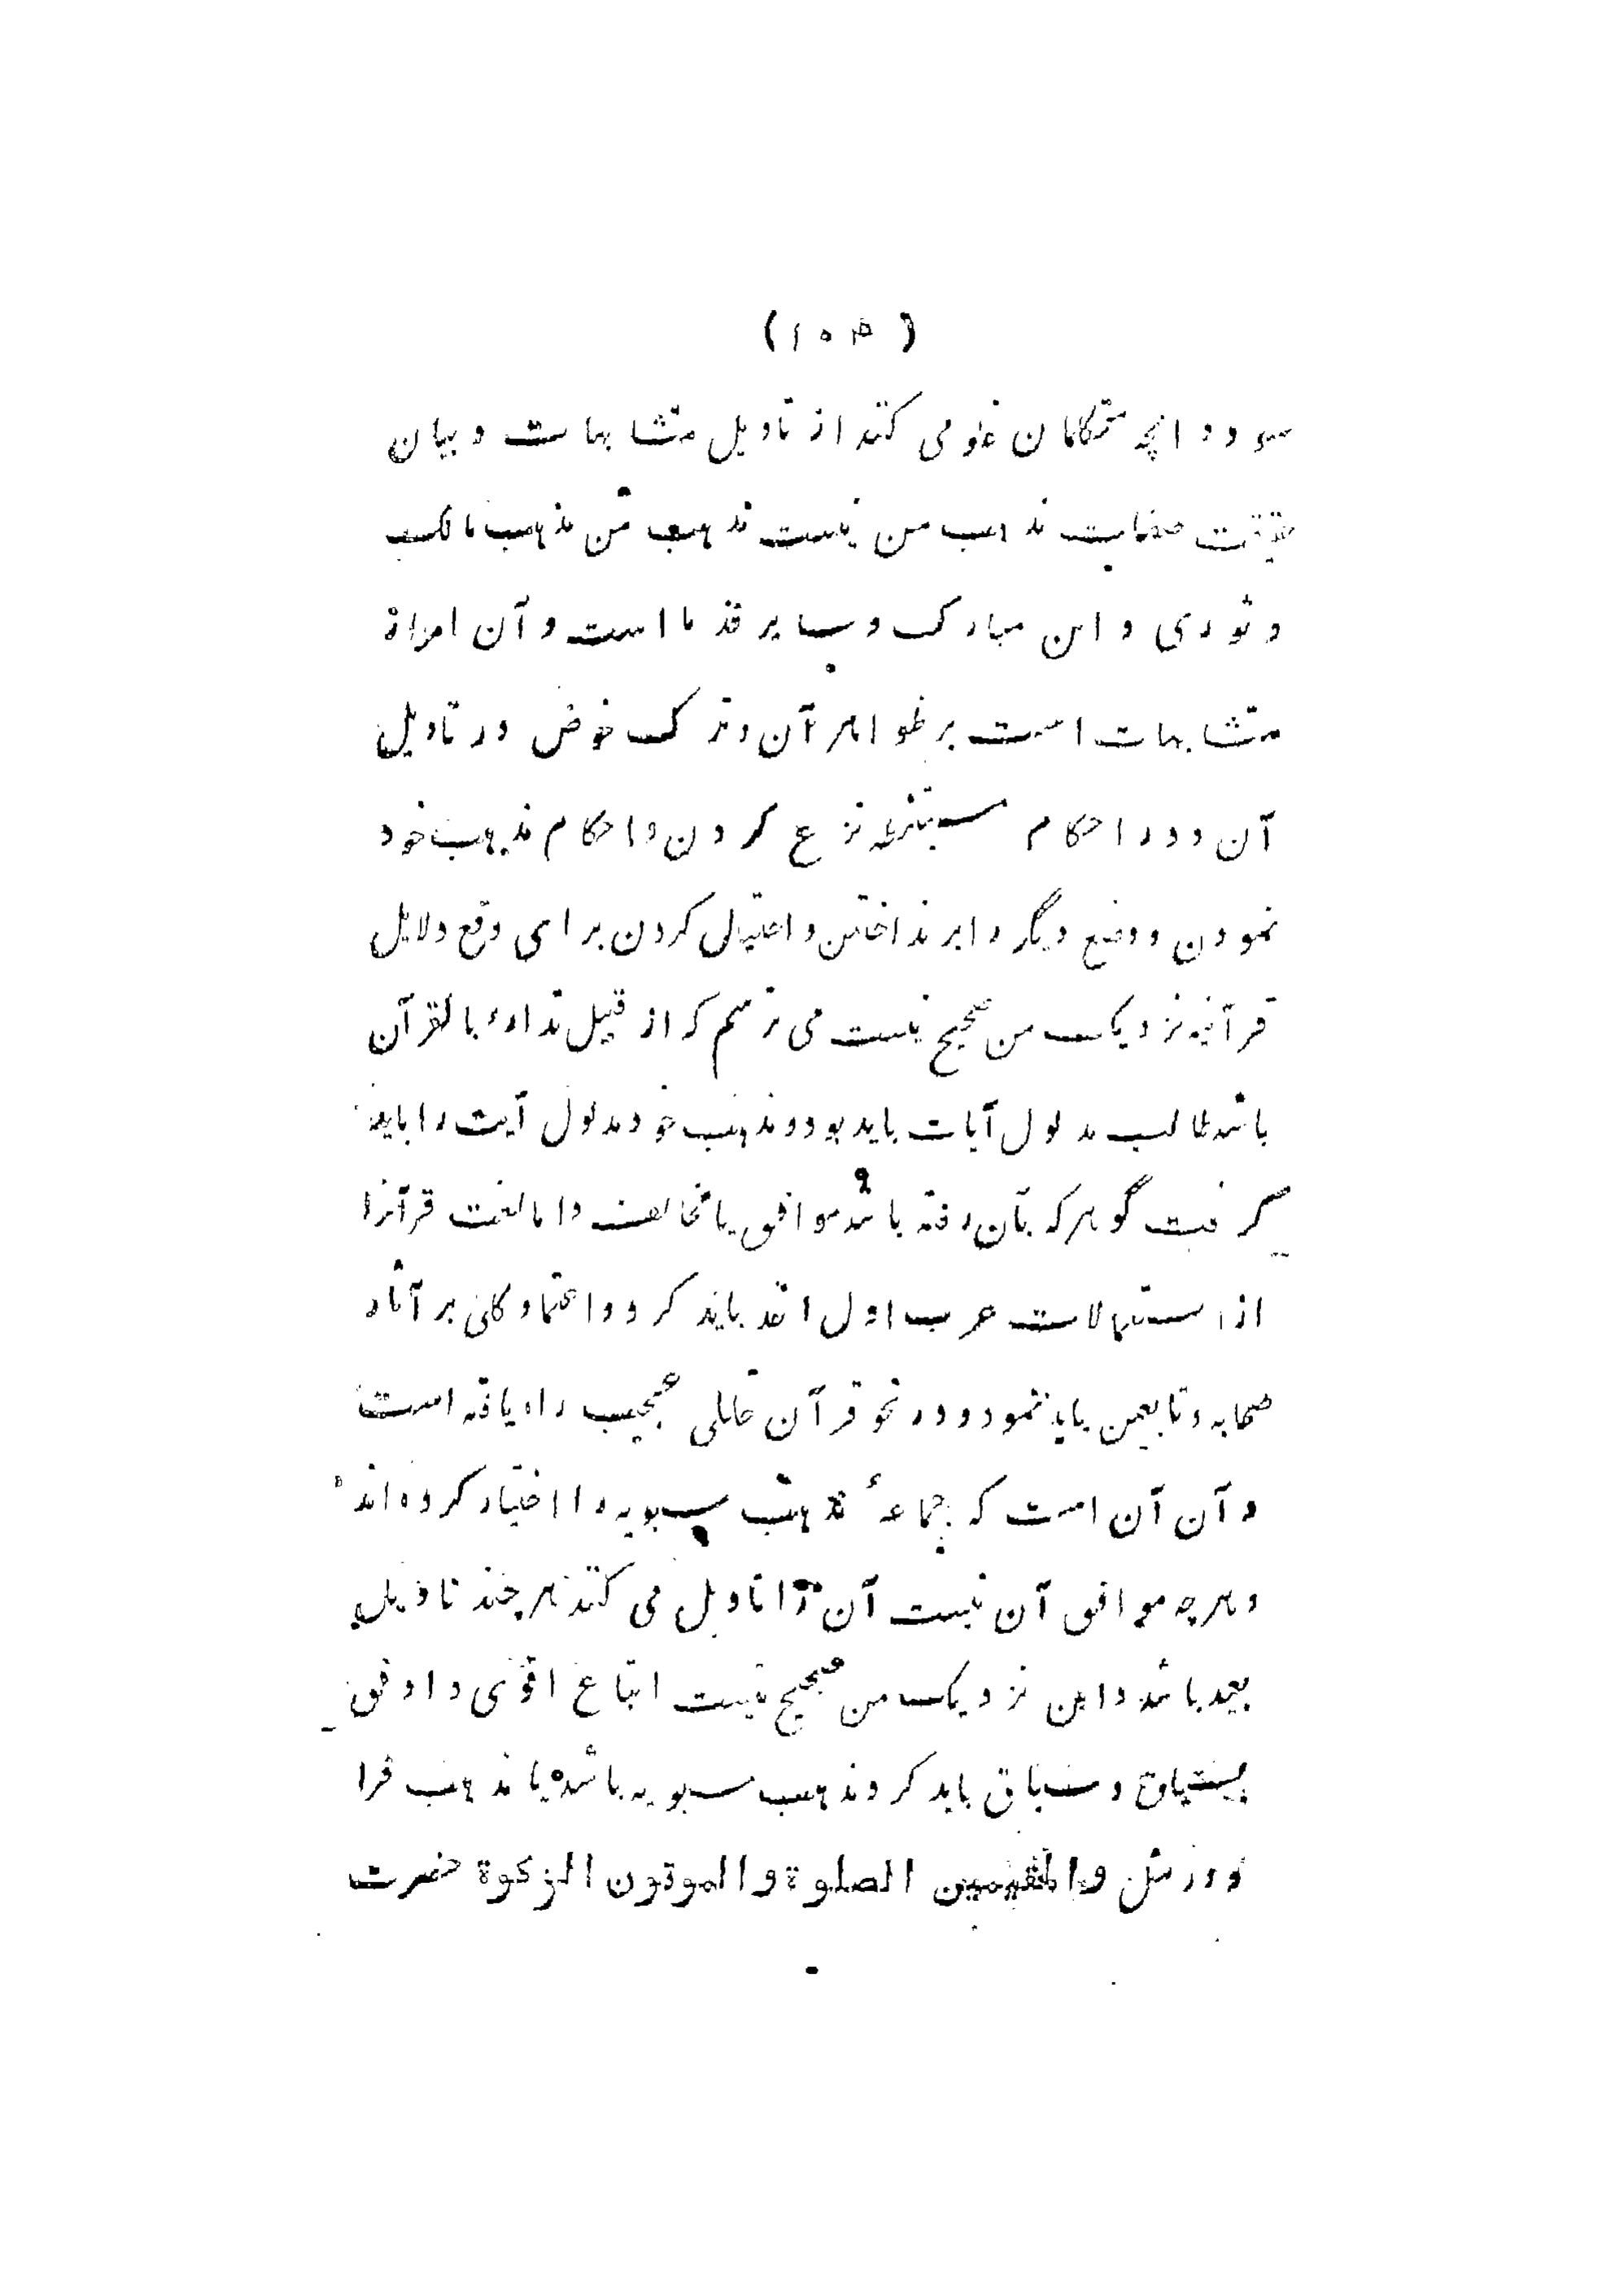 (۱۰۴)
و انچه متکلمان غلو می کنند از تاویل متشابهات و بیان
حقیقت صفات مذهب من نیست مذهب من مذهب مالک
و ثوری و ابن مبارک و سایر قدما است و آن امرار
متشابهات است بر ظواهر آن و ترک خوض در تاویل
آن و در احکام مستنبطه نزع کردن و احکام مذهب خود
نمودن و وضع دیگر را بر انداختن و احتیال کردن برای دفع دلایل
قرآنیه نزدیک من صحیح نیست می ترسم که از قبیل تدارء بالقرآن
باشد طالب مدلول آیات باید بود و مذهب خود مدلول آیت را باید
گرفت گو هر که بآن رفته باشد موافق یا مخالف و اما لغت قرآن را
از استعمالات عرب اول اخذ باید کرد و اعتماد کلی بر آثار
صحابه و تابعین باید نمود و در نحو قرآن خللی عجیب راه یافته است
و آن آن است که جماعهٔ مذهب سیبویه را اختیار کرده اند
و هرچه موافق آن نیست آن را تاویل می کنند هر چند تاویل
بعید باشد و این نزدیک من صحیح نیست اتباع اقوی و اوفق
بسیاق و سباق باید کرد مذهب سیبویه باشد یا مذهب فرا
و در مثل والمقیمین الصلوة والموتون الزکوة حضرت